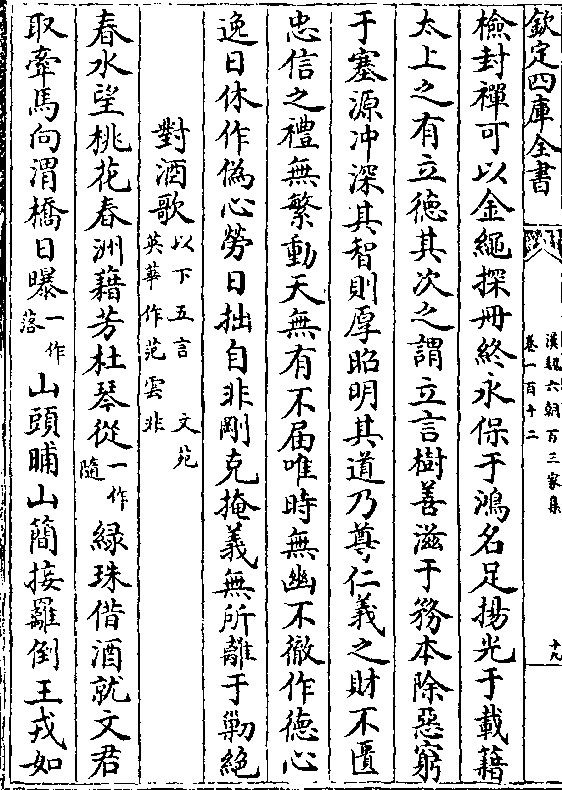 欽定四庫全書
漢魏六朝百三家集
卷一百十二
十九
檢封禪可以金繩探冊終永保于鴻名足揚光于載籍
太上之有立德其次之謂立言樹善滋于務本除惡窮
于塞源冲深其智則厚昭明其道乃尊仁義之財不匱
忠信之禮無繁動天無有不届唯時無幽不徹作徳心
逸日休作偽心勞日拙自非剛克掩義無所離于勦絶
對酒歌以下五言文苑英華作范雲非
春水望桃花春洲藉芳杜琴從一作隨緑珠借酒就文君
取牽馬向渭橋日曝一作落山頭晡山簡接䍦倒王戎如